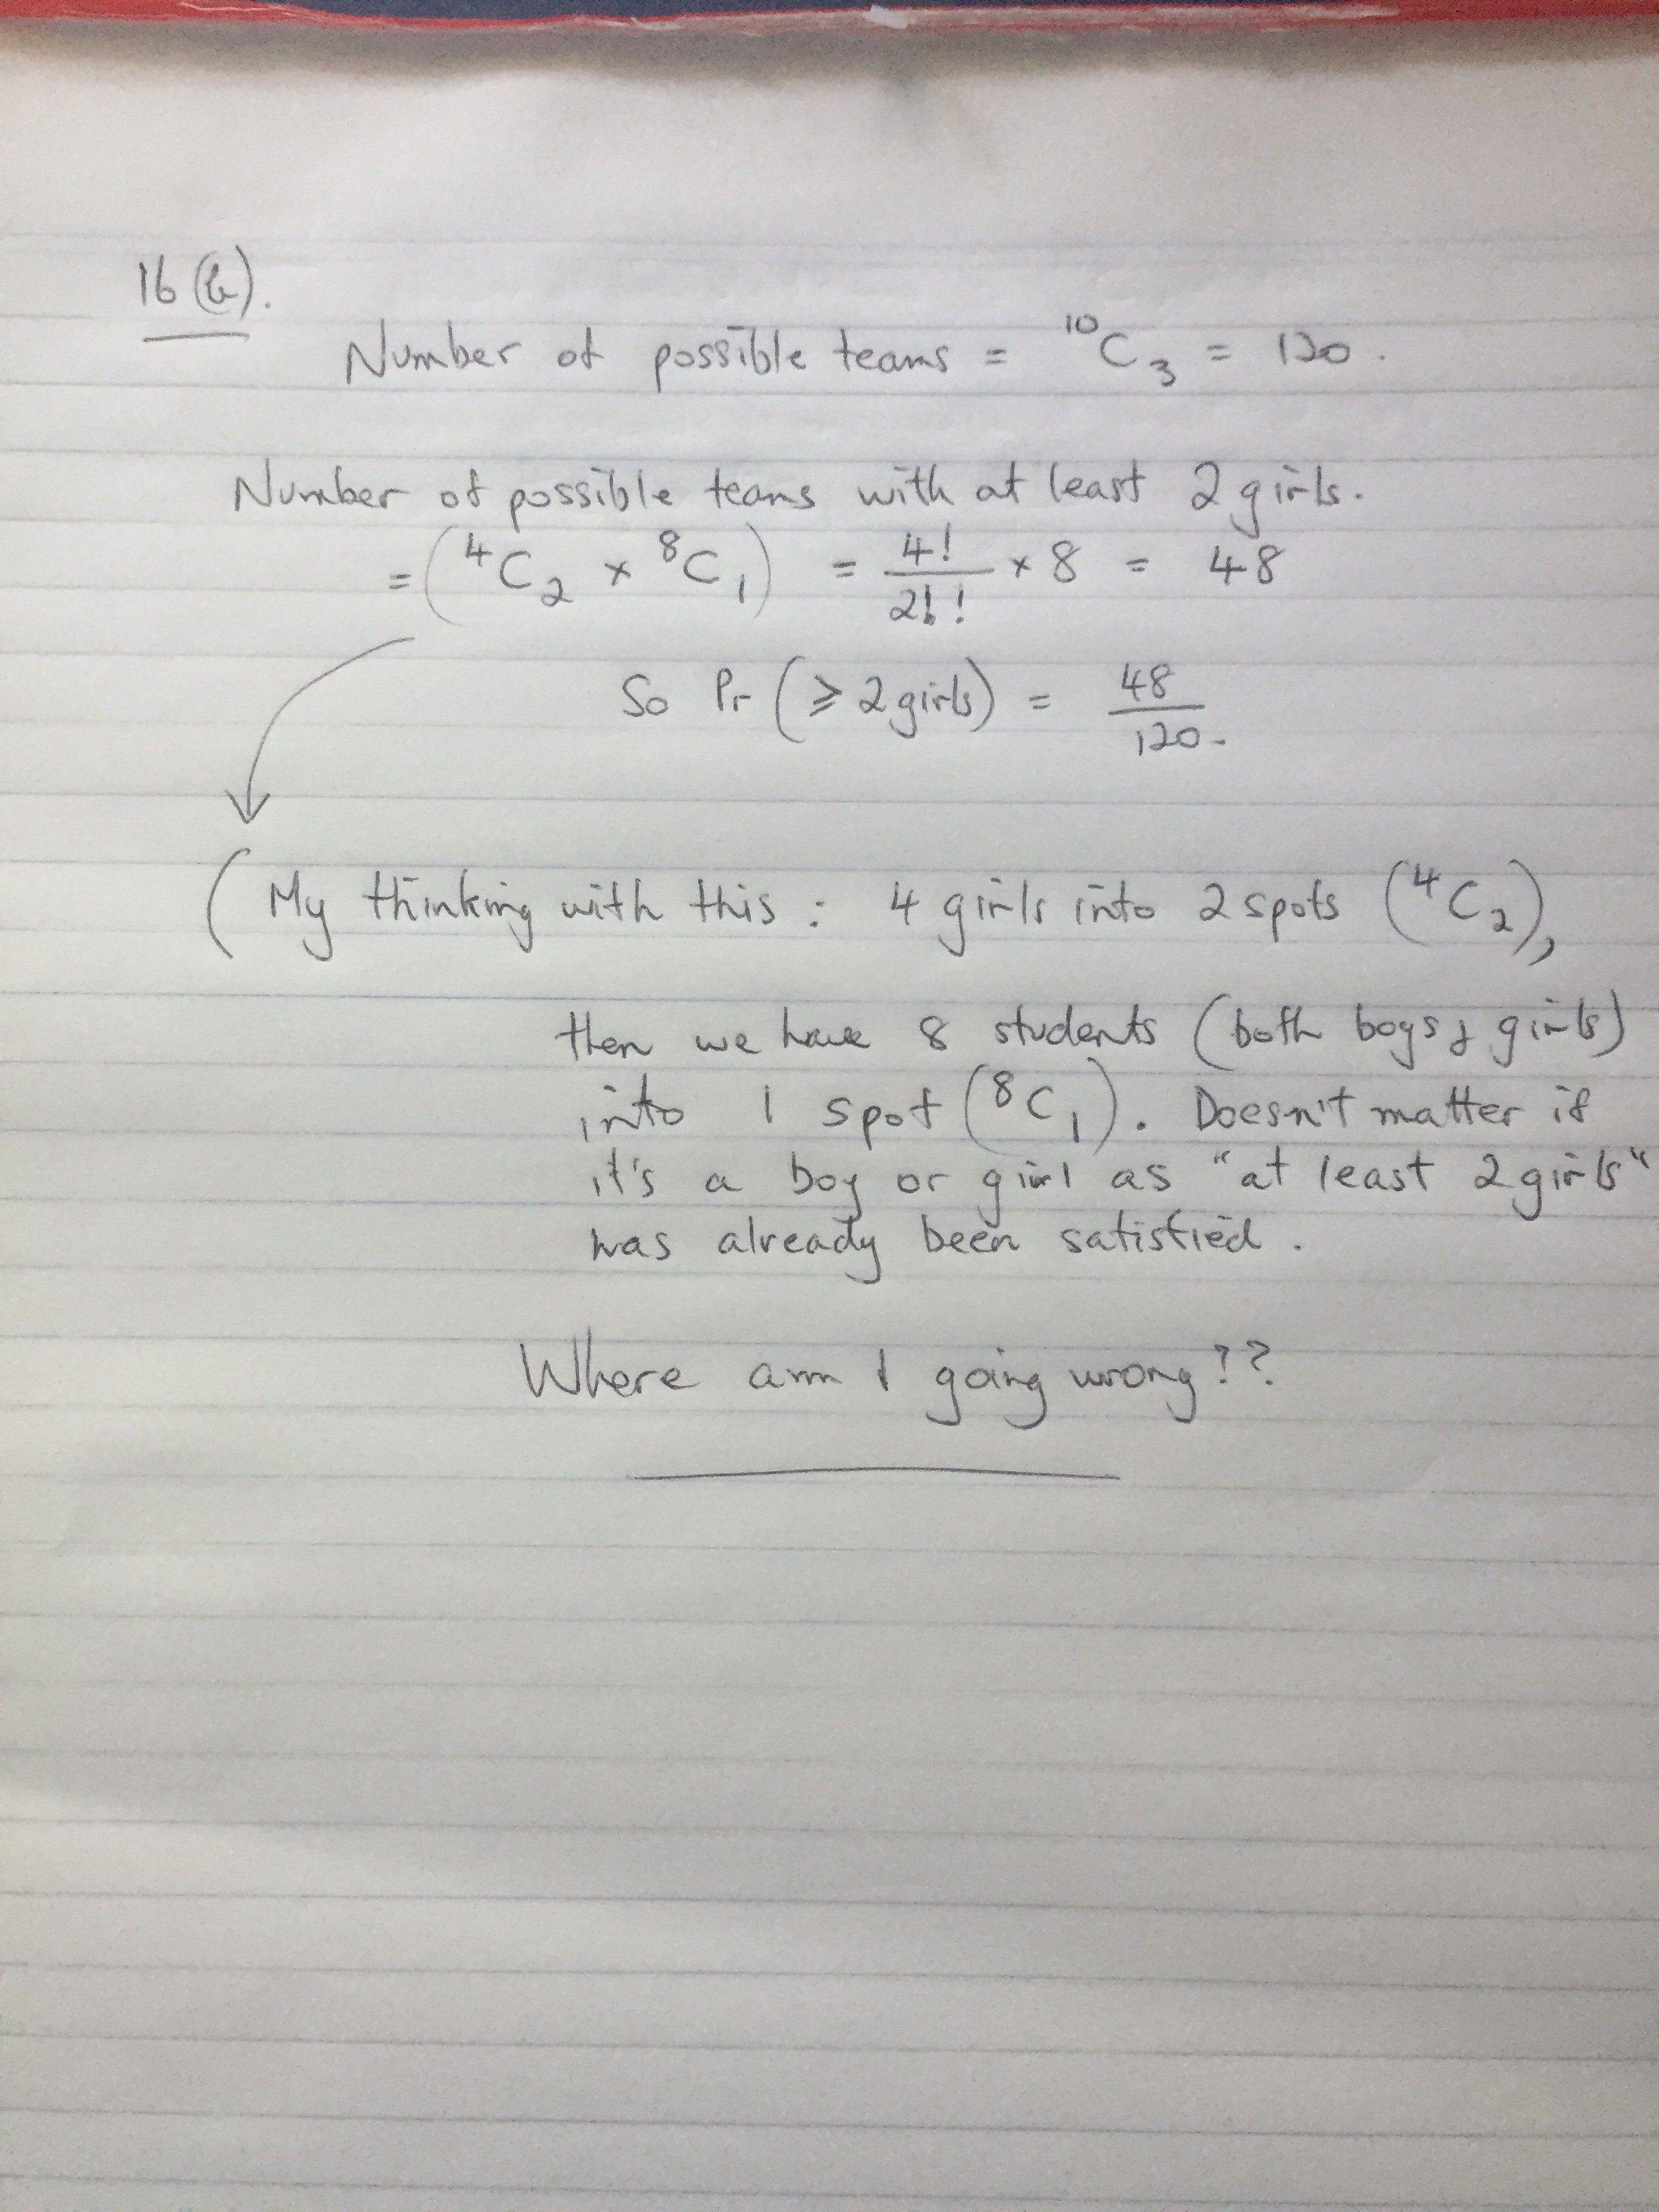 16(b).
Number of possible teams = ¹⁰C₃ = 120.
Number of possible teams with at least 2 girls.
= (⁴C₂ × ⁸C₁) = 4!/2!! × 8 = 48
So Pr (⩾ 2 girls) = 48/120.
(My thinking with this : 4 girls into 2 spots (⁴C₂),
then we have 8 students (both boys & girls)
into 1 spot (⁸C₁). Doesn't matter if
it's a boy or girl as "at least 2 girls"
has already been satisfied.
Where am I going wrong??